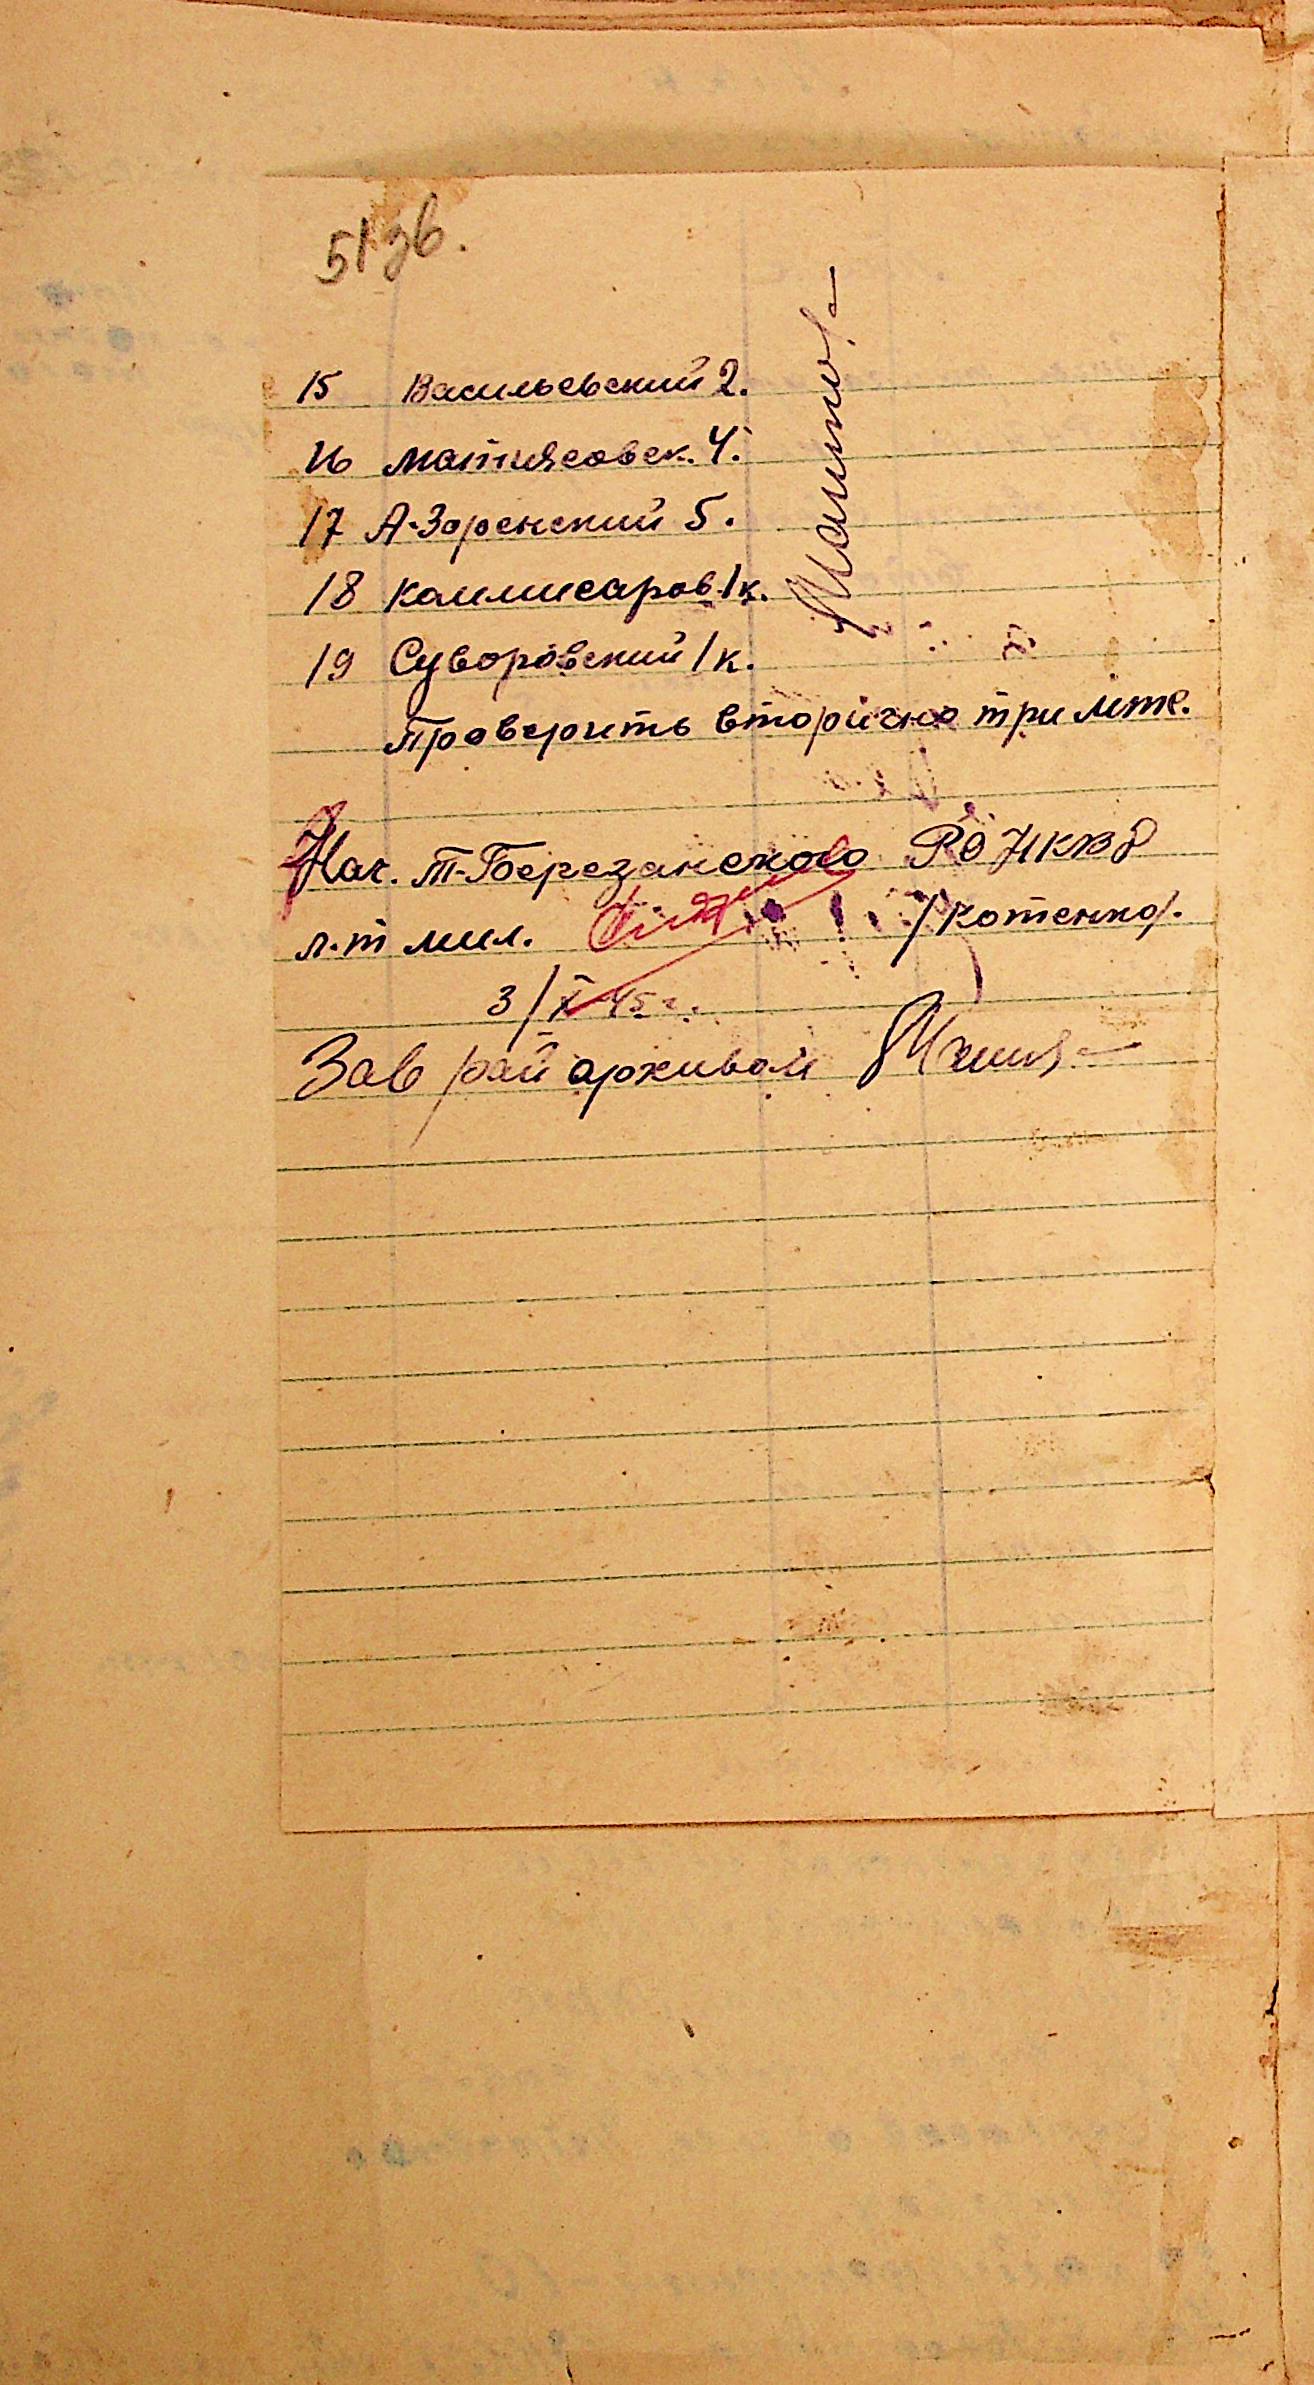 51 зв.
15 Васильевский 2.
16 Матиясовск. 4.
17 А-Заренский 5.
18 Коммисаров. 1 к.
19 Суворовский 1 к.
Проверить вторично три
Нач. Т-Березанского РО НКВД
л-т мил. /Котенко/.
3/X 45 г.
Зав рай архивом